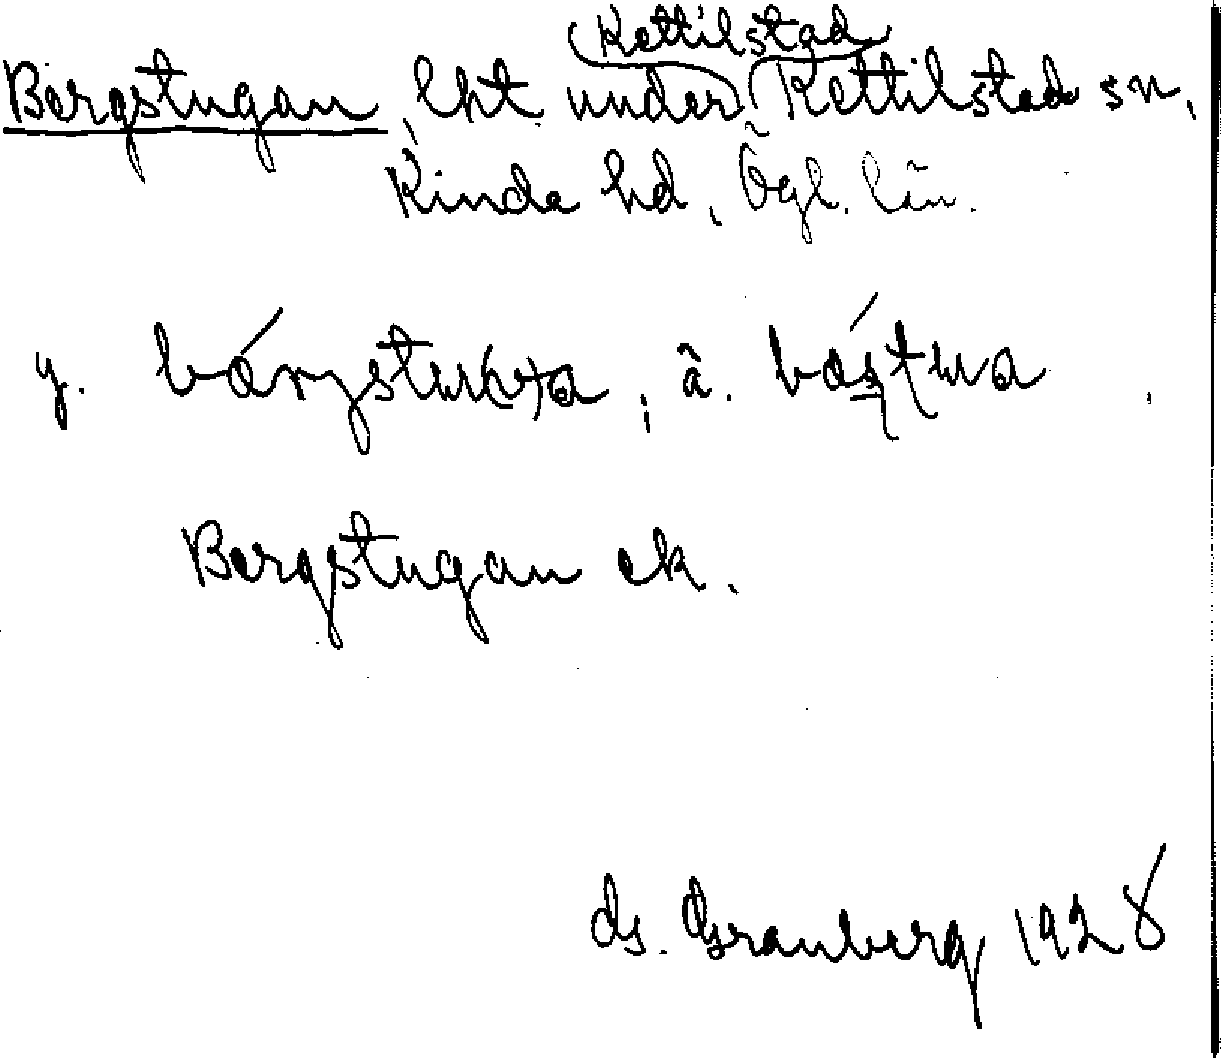 Kettilstad
Bergstugan, lht under Kettilstad sn,
Kinda hd, Ögl. län.
y. bárystu(g)a, ä. bástua
Bergstugan ek.
G. Granberg 1928